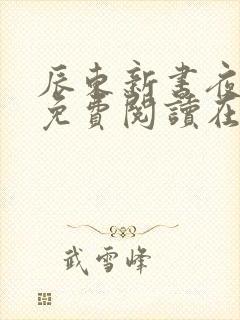 辰東新書夜
免費閱讀在
武雪峰